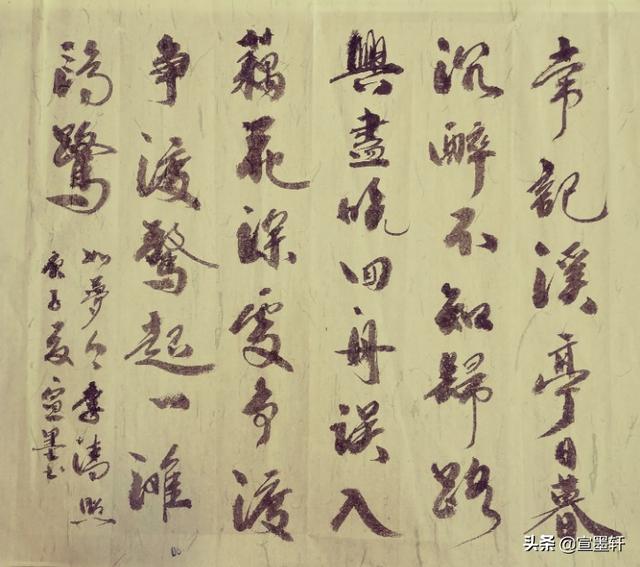 常記溪亭日暮
沉醉不知歸路
興盡晚回舟誤入
藕花深處争渡
争渡驚起一灘
鷺
如夢令 李清照
庚子夏宣墨书
头条 @宣墨轩